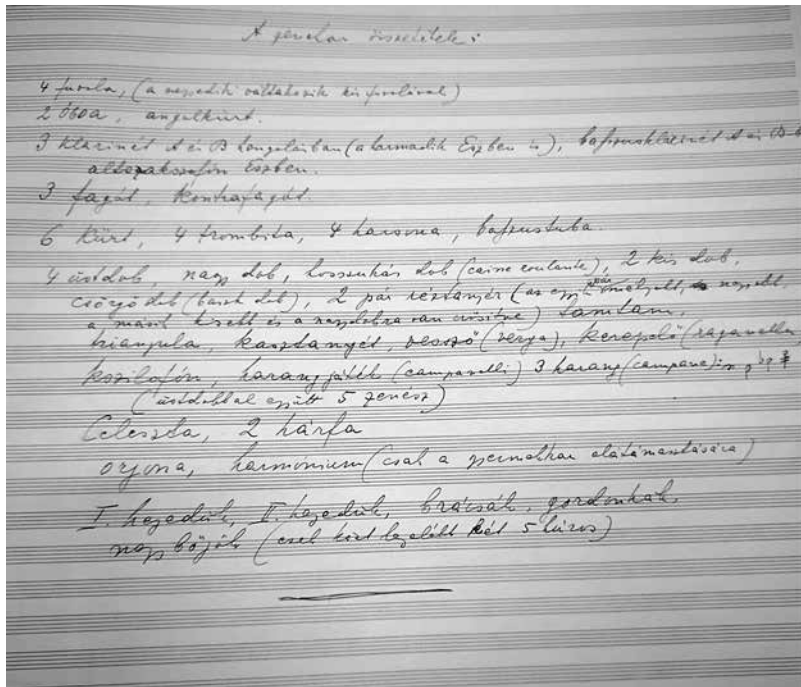 A zenekar összetétele:
4 fuvola, (a negyedik váltakozik kis fuvolával)
2 óboa, angolkürt.
3 klarinét A és B hangolásban (a harmadik Eszben is), basszusklarinét A és B-b
altszakszofón Eszben.
3 fagót, kontrafagót.
6 kürt, 4 trombita, 4 harsona, basszustuba.
4 üstdob, nagy dob, hosszúkás dob (caisse roulante), 2 kis dob,
csörgő dob (bask dob), 2 pár réztányér (az egyik mélyebb, nagyobb,
a másik kisebb és a nagydobra van erősítve) tamtam,
triangulum, kasztanyét, vessző (verga), kerepelő (raganella)
xozilofón, harangjáték (campanelli) 3 harang (campane)
(üstdobbal együtt 5 zenész)
Celeszta, 2 hárfa
orgona, harmónium (csak a alátámasztására)
I. hegedűk, II. hegedűk, brácsák, gordonkák,
nagybőgők (ezek közt legalább két 5 húros)